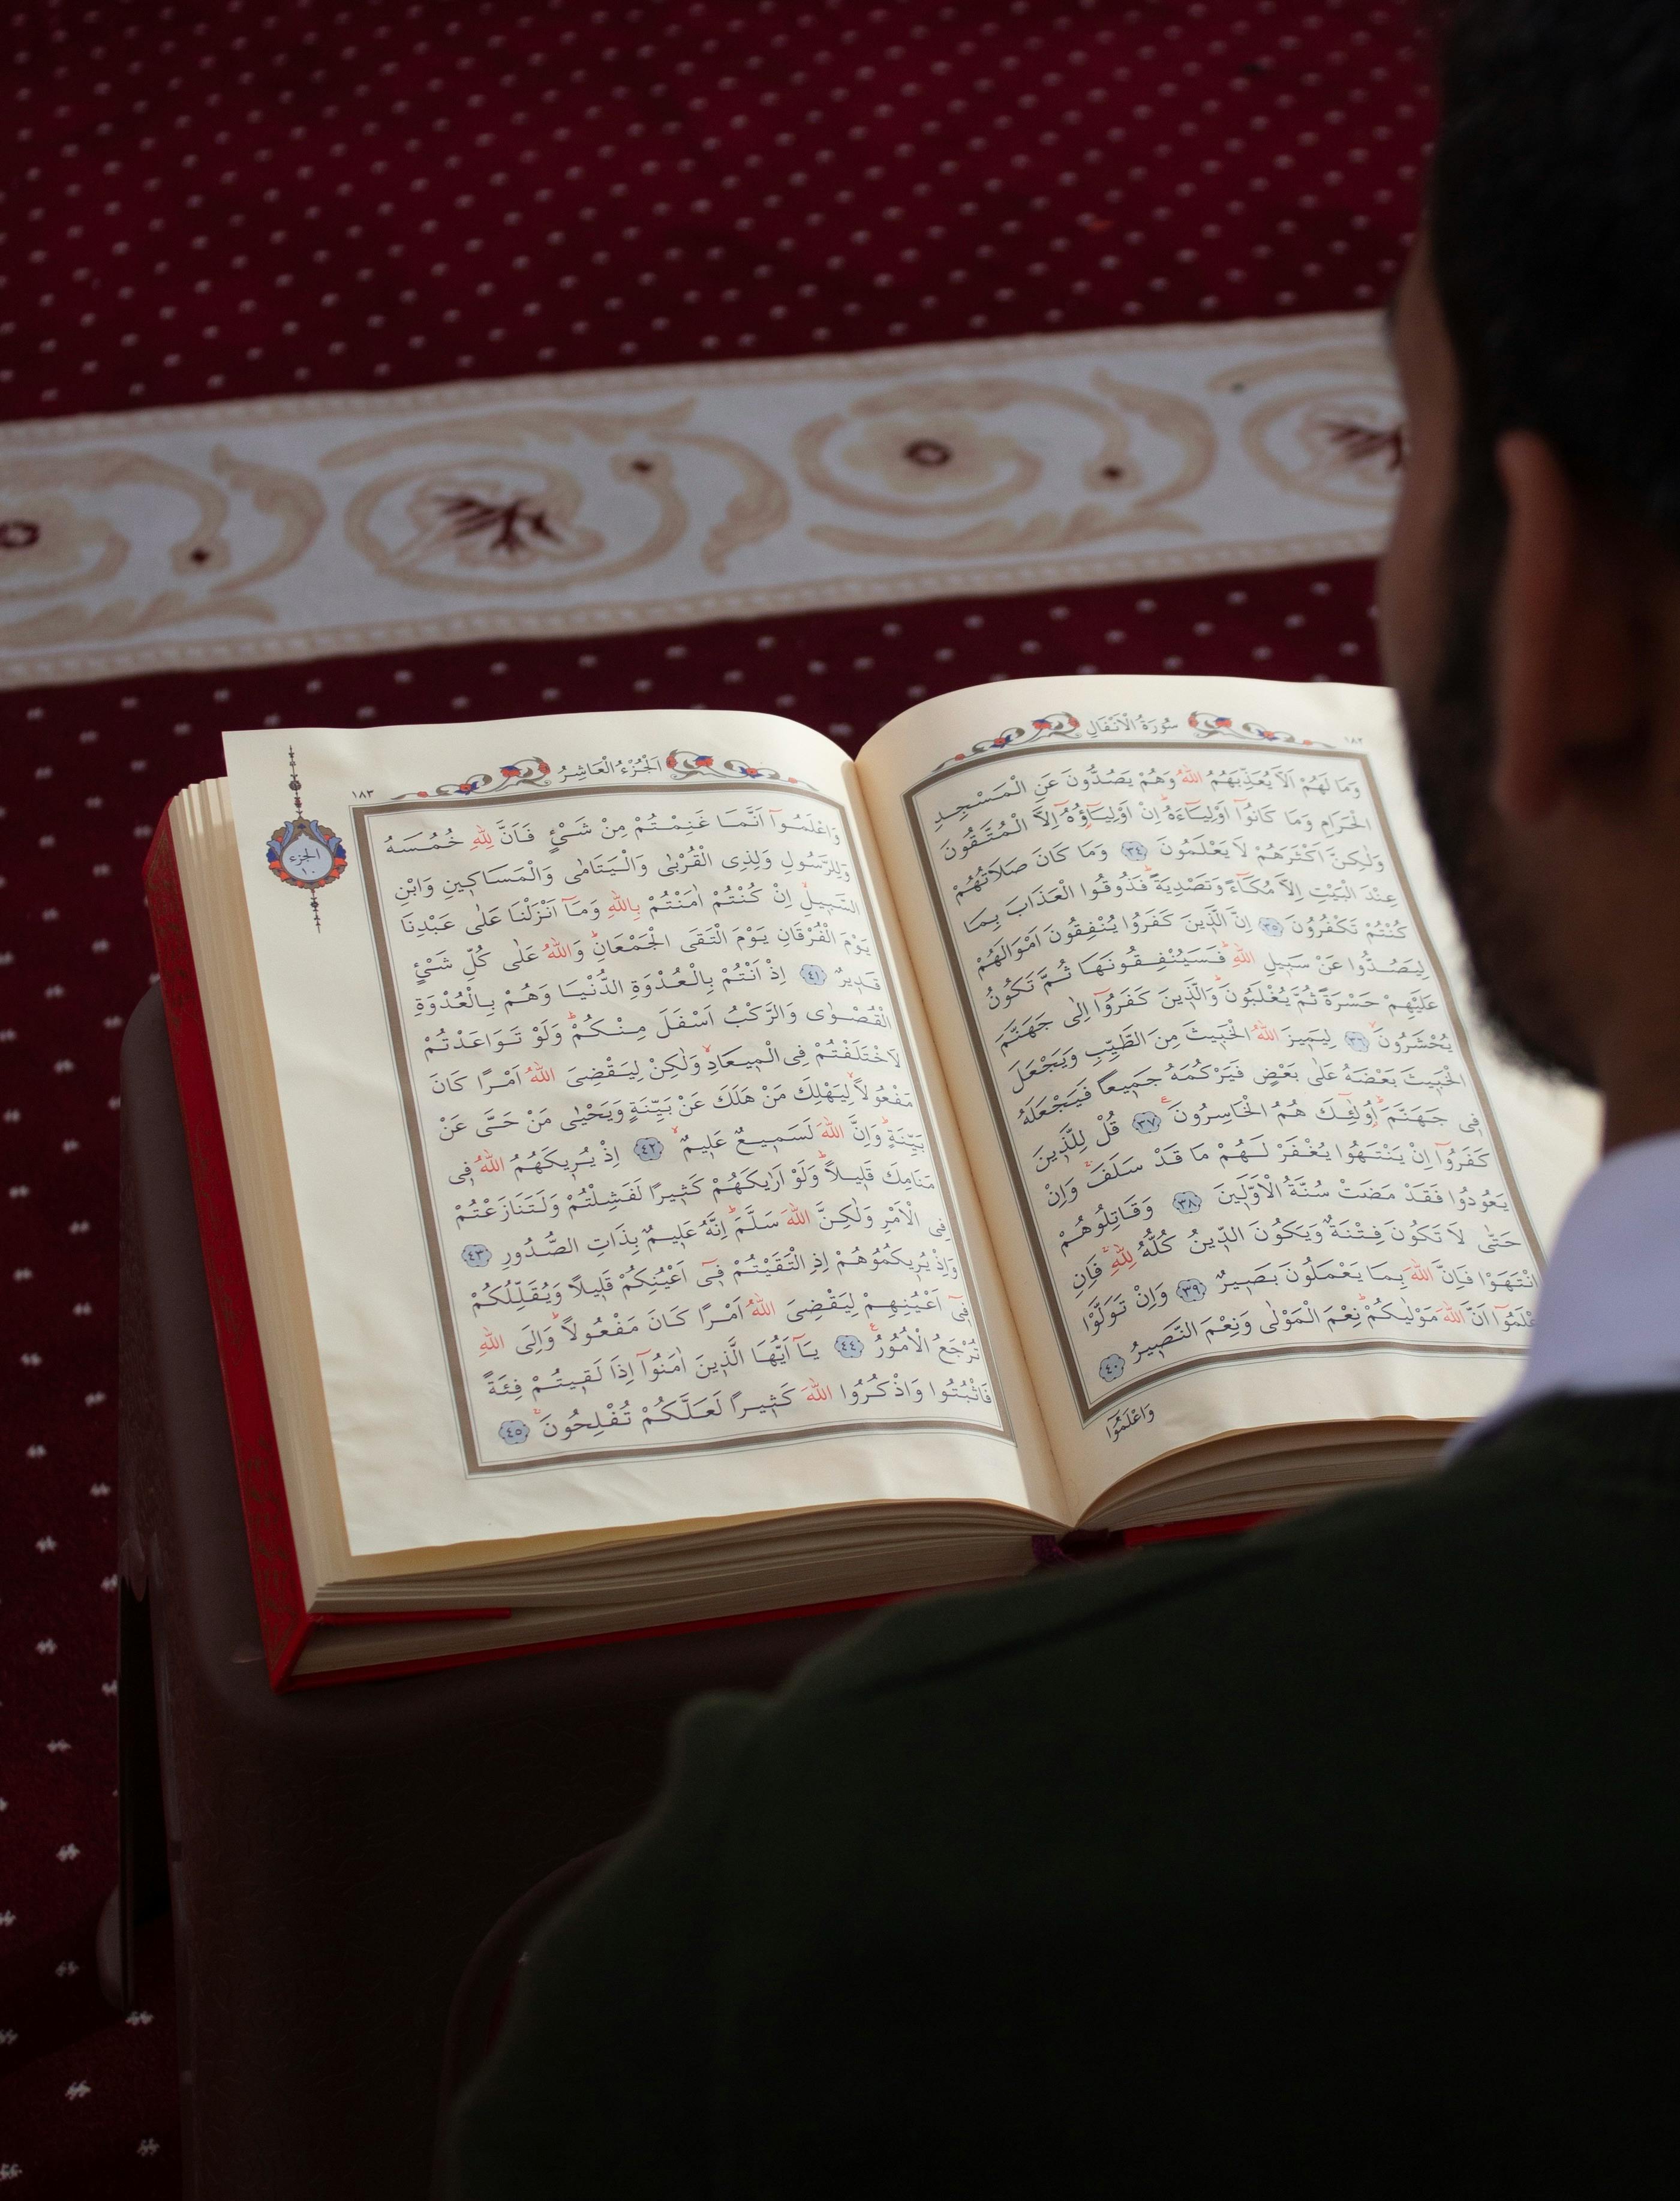 سُورَةُ الْاَنْفَالِ
١٨٢
وَمَا لَهُمْ اَلَّا يُعَذِّبَهُمُ اللّٰهُ وَهُمْ يَصُدُّونَ عَنِ الْمَسْجِدِ
الْحَرَامِ وَمَا كَانُٓوا اَوْلِيَٓاءَهُۜ اِنْ اَوْلِيَٓاؤُ۬هُٓ اِلَّا الْمُتَّقُونَ
وَلٰكِنَّ اَكْثَرَهُمْ لَا يَعْلَمُونَ ﴿٣٤﴾ وَمَا كَانَ صَلَاتُهُمْ
عِنْدَ الْبَيْتِ اِلَّا مُكَٓاءً وَتَصْدِيَةًۜ فَذُوقُوا الْعَذَابَ بِمَا
كُنْتُمْ تَكْفُرُونَ ﴿٣٥﴾ اِنَّ الَّذِينَ كَفَرُوا يُنْفِقُونَ اَمْوَالَهُمْ
لِيَصُدُّوا عَنْ سَبِيلِ اللّٰهِۜ فَسَيُنْفِقُونَهَا ثُمَّ تَكُونُ
عَلَيْهِمْ حَسْرَةً ثُمَّ يُغْلَبُونَۜ وَالَّذِينَ كَفَرُٓوا اِلٰى جَهَنَّمَ
يُحْشَرُونَۙ ﴿٣٦﴾ لِيَمِيزَ اللّٰهُ الْخَبِيثَ مِنَ الطَّيِّبِ وَيَجْعَلَ
الْخَبِيثَ بَعْضَهُ عَلٰى بَعْضٍ فَيَرْكُمَهُ جَمِيعاً فَيَجْعَلَهُ
فِى جَهَنَّمَۜ اُو۬لٰٓئِكَ هُمُ الْخَاسِرُونَ۟ ﴿٣٧﴾ قُلْ لِلَّذِينَ
كَفَرُٓوا اِنْ يَنْتَهُوا يُغْفَرْ لَهُمْ مَا قَدْ سَلَفَۚ وَاِنْ
يَعُودُوا فَقَدْ مَضَتْ سُنَّةُ الْاَوَّلِينَ ﴿٣٨﴾ وَقَاتِلُوهُمْ
حَتّٰى لَا تَكُونَ فِتْنَةٌ وَيَكُونَ الدِّينُ كُلُّهُ لِلّٰهِۚ فَاِنِ
انْتَهَوْا فَاِنَّ اللّٰهَ بِمَا يَعْمَلُونَ بَصِيرٌ ﴿٣٩﴾ وَاِنْ تَوَلَّوْا
فَاعْلَمُٓوا اَنَّ اللّٰهَ مَوْلٰيكُمْۜ نِعْمَ الْمَوْلٰى وَنِعْمَ النَّصِيرُ ﴿٤٠﴾
وَاعْلَمُٓوا
اَلْجُزْءُ الْعَاشِرُ
١٨٣
الجزء
١٠
وَاعْلَمُٓوا اَنَّمَا غَنِمْتُمْ مِنْ شَيْءٍ فَاَنَّ لِلّٰهِ خُمُسَهُ
وَلِلرَّسُولِ وَلِذِى الْقُرْبٰى وَالْيَتَامٰى وَالْمَسَاكِينِ وَابْنِ
السَّبِيلِۙ اِنْ كُنْتُمْ اٰمَنْتُمْ بِاللّٰهِ وَمَٓا اَنْزَلْنَا عَلٰى عَبْدِنَا
يَوْمَ الْفُرْقَانِ يَوْمَ الْتَقَى الْجَمْعَانِۜ وَاللّٰهُ عَلٰى كُلِّ شَيْءٍ
قَدِيرٌ ﴿٤١﴾ اِذْ اَنْتُمْ بِالْعُدْوَةِ الدُّنْيَا وَهُمْ بِالْعُدْوَةِ
الْقُصْوٰى وَالرَّكْبُ اَسْفَلَ مِنْكُمْۜ وَلَوْ تَوَاعَدْتُمْ
لَاخْتَلَفْتُمْ فِى الْمِيعَادِۙ وَلٰكِنْ لِيَقْضِىَ اللّٰهُ اَمْرًا كَانَ
مَفْعُولًاۙ لِيَهْلِكَ مَنْ هَلَكَ عَنْ بَيِّنَةٍ وَيَحْيٰى مَنْ حَىَّ عَنْ
بَيِّنَةٍۜ وَاِنَّ اللّٰهَ لَسَمِيعٌ عَلِيمٌۙ ﴿٤٢﴾ اِذْ يُرِيكَهُمُ اللّٰهُ فِى
مَنَامِكَ قَلِيلًاۜ وَلَوْ اَرٰيكَهُمْ كَثِيرًا لَفَشِلْتُمْ وَلَتَنَازَعْتُمْ
فِى الْاَمْرِ وَلٰكِنَّ اللّٰهَ سَلَّمَۜ اِنَّهُ عَلِيمٌ بِذَاتِ الصُّدُورِ ﴿٤٣﴾
وَاِذْ يُرِيكُمُوهُمْ اِذِ الْتَقَيْتُمْ فِٓى اَعْيُنِكُمْ قَلِيلًا وَيُقَلِّلُكُمْ
فِٓى اَعْيُنِهِمْ لِيَقْضِىَ اللّٰهُ اَمْرًا كَانَ مَفْعُولًاۜ وَاِلَى اللّٰهِ
تُرْجَعُ الْاُمُورُ۟ ﴿٤٤﴾ يَٓا اَيُّهَا الَّذِينَ اٰمَنُٓوا اِذَا لَقِيتُمْ فِئَةً
فَاثْبُتُوا وَاذْكُرُوا اللّٰهَ كَثِيرًا لَعَلَّكُمْ تُفْلِحُونَۚ ﴿٤٥﴾